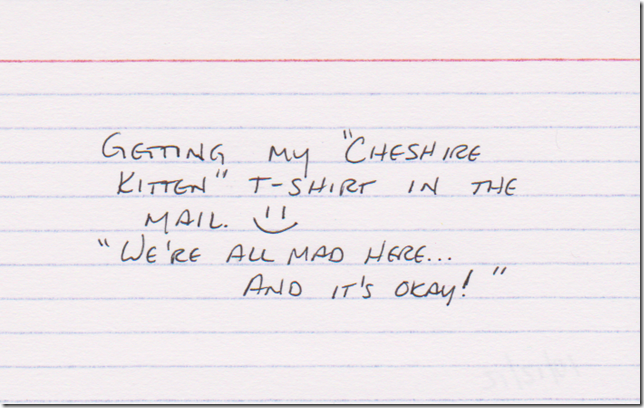 GETTING MY "CHESHIRE
KITTEN" T-SHIRT IN THE
MAIL. :)
"WE'RE ALL MAD HERE...
AND IT'S OKAY!"